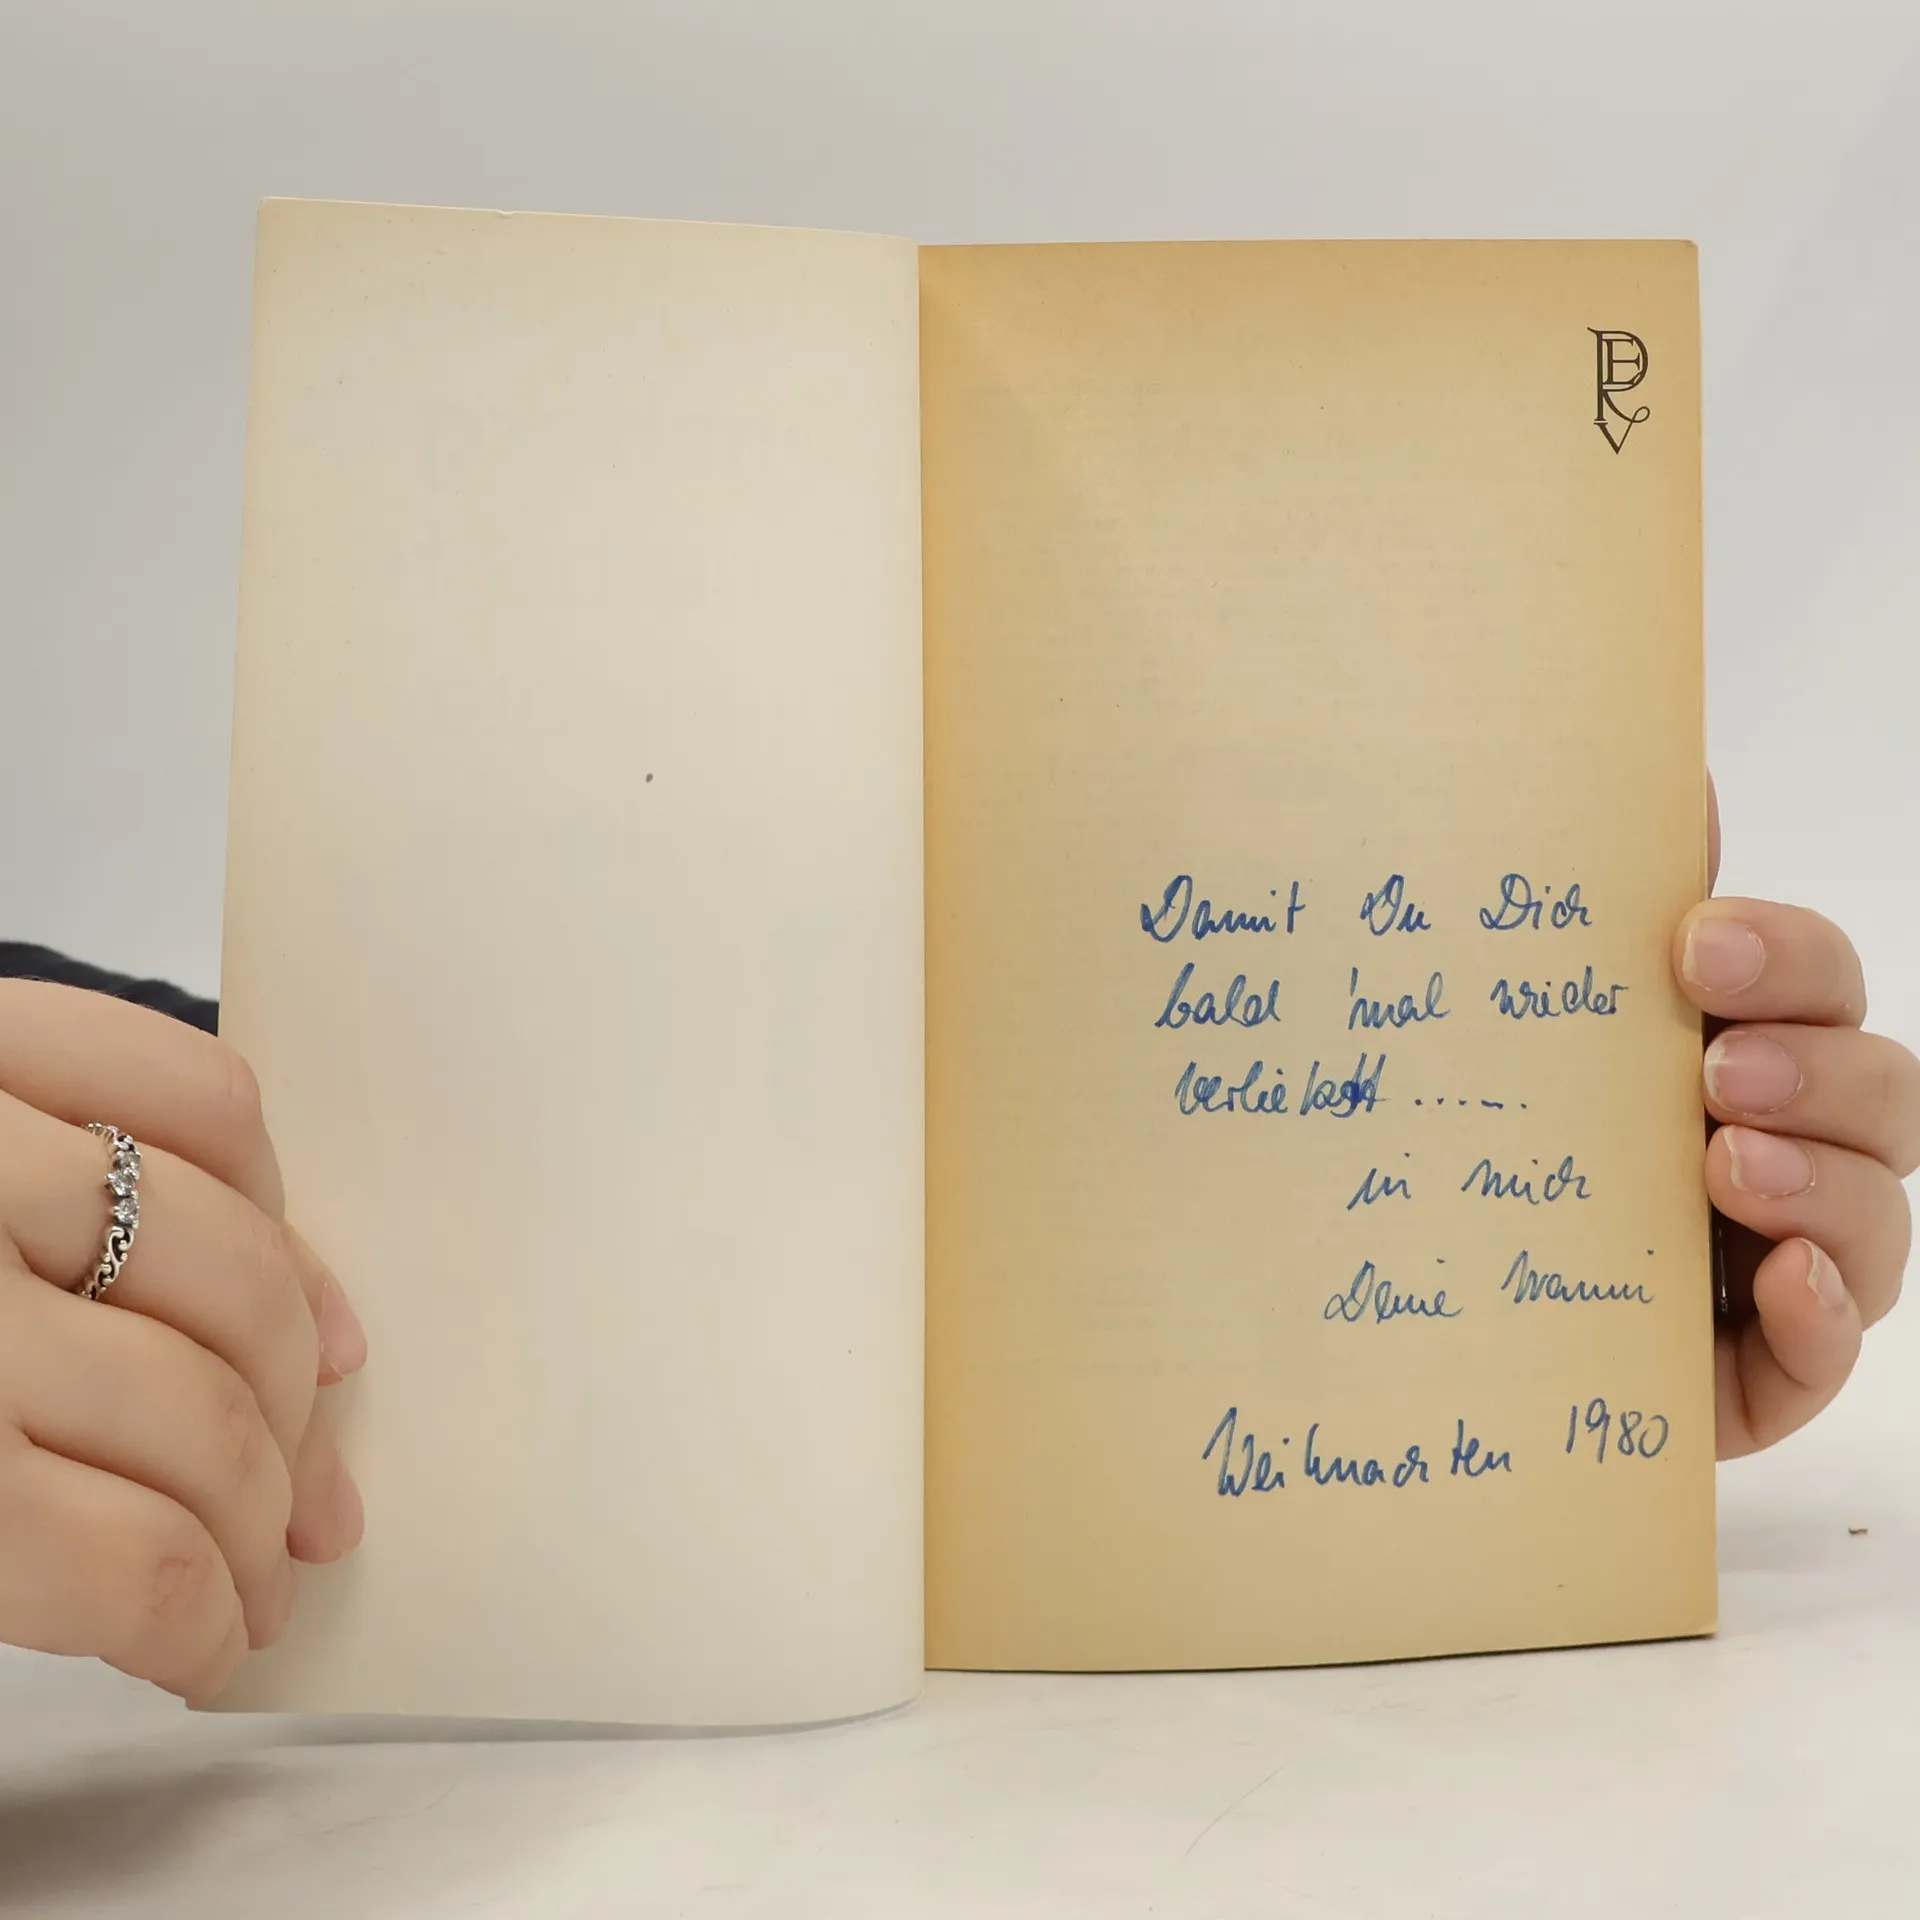 PERV
Damit Du Dich
bald 'mal wieder
verliebst ......
in mich
Deine
Weihnachten 1980